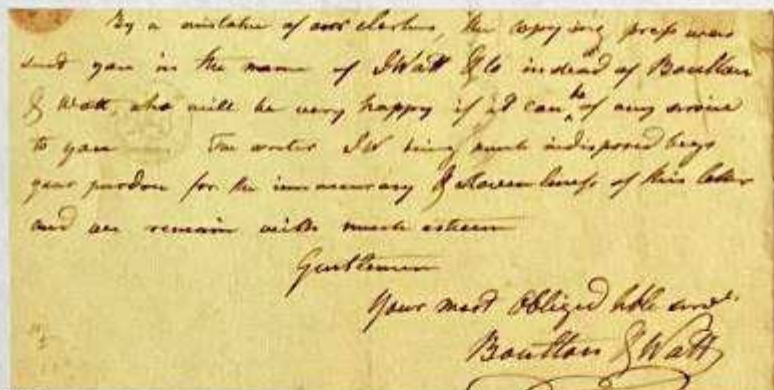 By a mistake of our clerks, the copying press was
sent you in the name of J Watt & Co instead of Boulton
& Watt, who will be very happy if it can be of any service
to you The writer JW being much indisposed begs
your pardon for the inaccuracy & slovenliness of this letter
and we remain with much esteem
Gentlemen
Your most obliged hble servts
Boulton & Watt